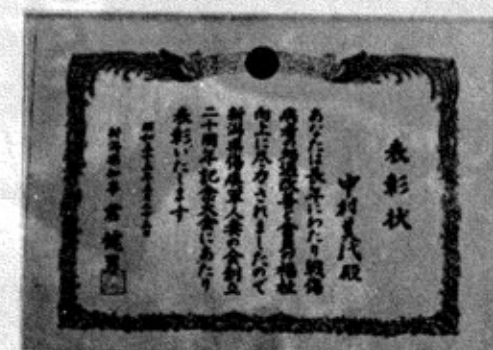 表彰状
中村　代殿
あなたは長年にわたり戦傷
病者の処遇改善と会員の福祉
向上に尽力されましたので
新潟県傷痍軍人妻の会創立
二十周年記念大会にあたり
表彰いたします
昭和五十　年　月　日
新潟県知事 君 健男